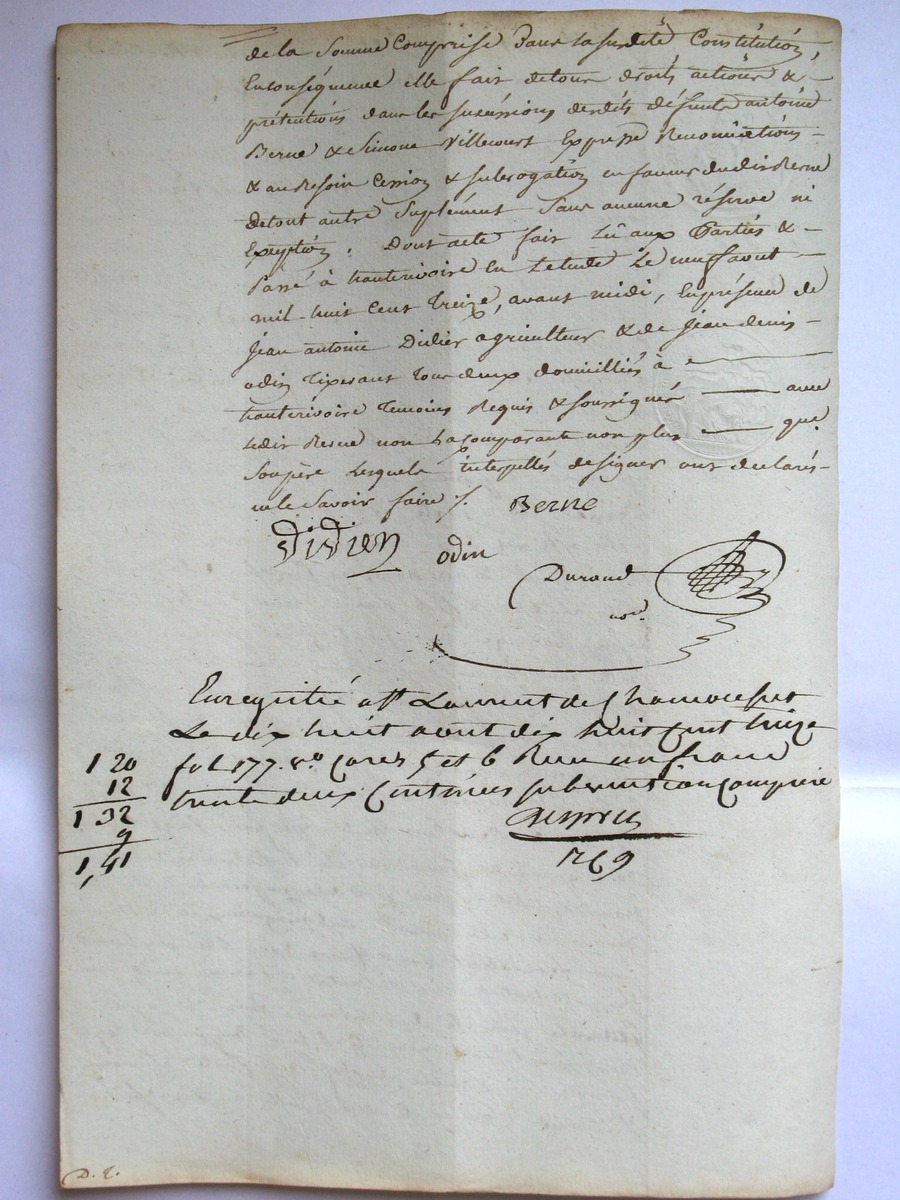 de la Somme Comprise dans la susdite Constitution,
En conséquence elle fait de tous droits actions & -
prétentions dans les successions desdits défunts antoine
Berne & Simone Villecourt Expresse Renonciations -
& au Besoin Cession & subrogation en faveur dudit Berne
de tout autre Suplément Sans aucune réserve ni
Exception. Dont acte fait Lû aux Parties & -
Passé à hauterivoire En Letude Le neuf aout -
mil-huit Cent Treize, avant midi, En présence de
Jean antoine Didier agriculteur & de Jean denis -
odin Tiserant Tous deux domiciliés à
hauterivoire Temoins Requis & soussignés avec
Ledit Berne non La Comparante non plus que
Son père Lesquels interpellés de signer ont déclarés -
ne le Savoir faire /. Berne
Didier
odin
Durand
not.
Enregistré a St Laurent de Chamousset
Le dix huit aout dix huit cent treize
fol 177 vo Cases 5 et 6 Recu un franc
trente deux Centimes subvention Comprise
1 20
12
1 32
9
1,41
1769
D. 2.